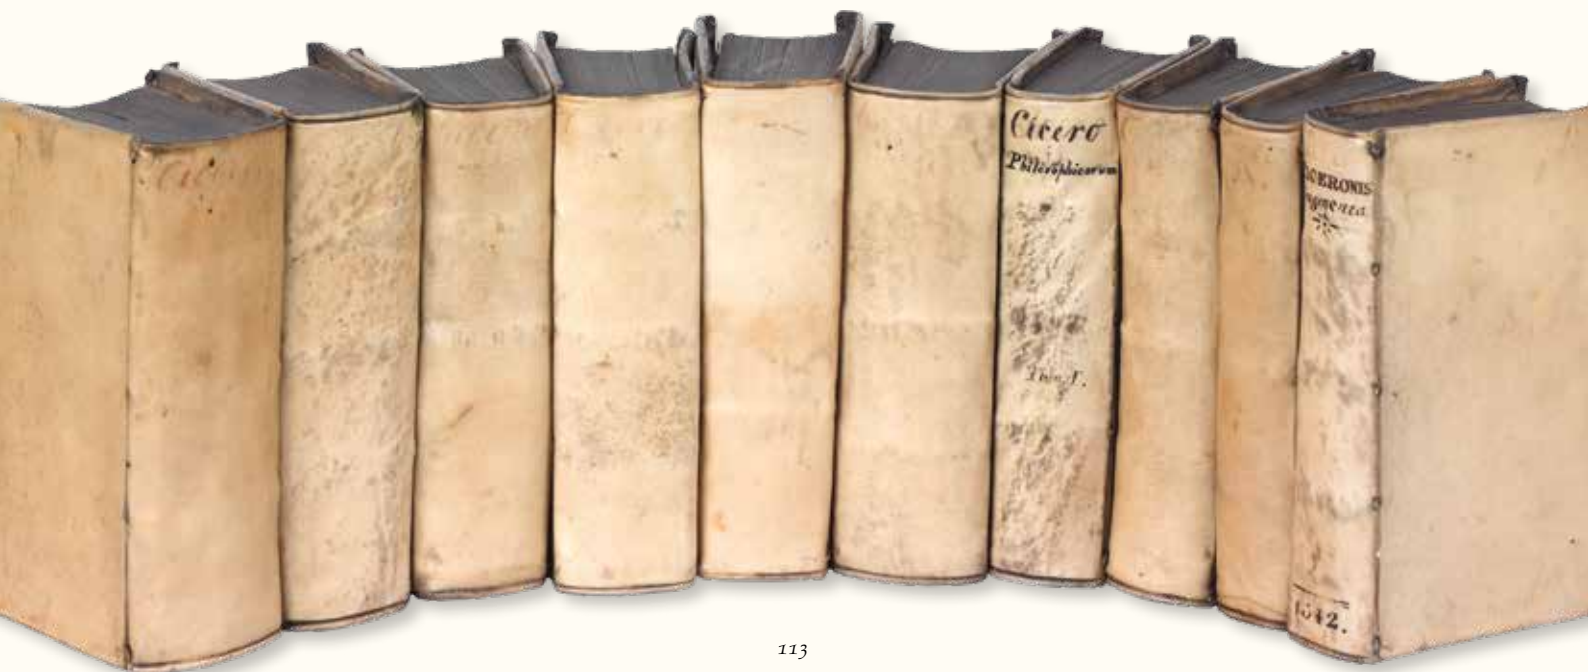 Cicero
Philosophicorum
Tom. I.
CICERONIS
1542.
113